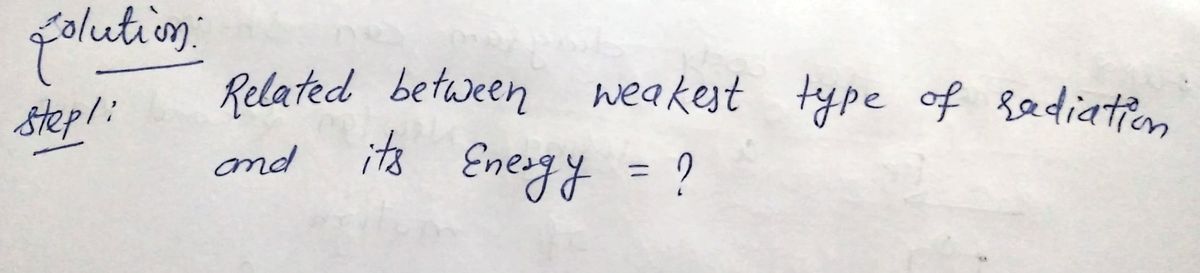 Solution:
Step1: Related between weakest type of radiation
and its Energy = ?